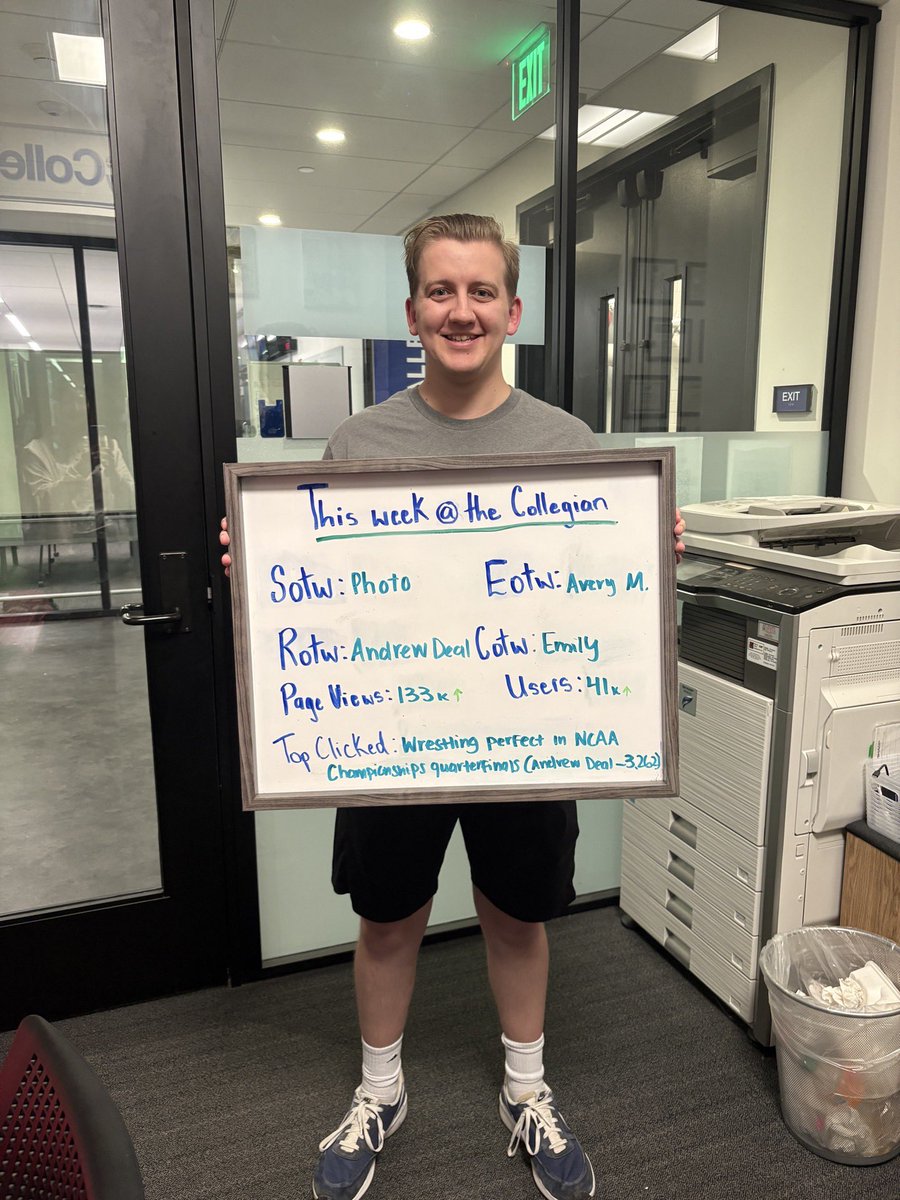 Colle
EXIT
LLE
EXIT
This week @ the Collegian
Sotw: Photo
Eotw: Avery M.
Rotw: Andrew Deal
Cotw: Emily
Page Views: 133K↑
Users: 41K↑
Top Clicked: Wrestling perfect in NCAA
Championships quarterfinals (Andrew Deal - 3,262)